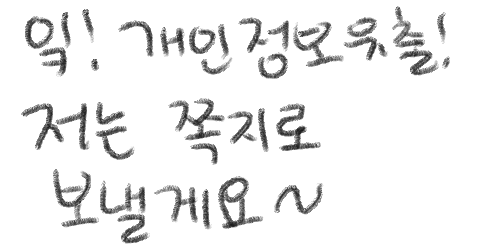 익! 개인정보유출!
저는 쪽지로
보낼게요~